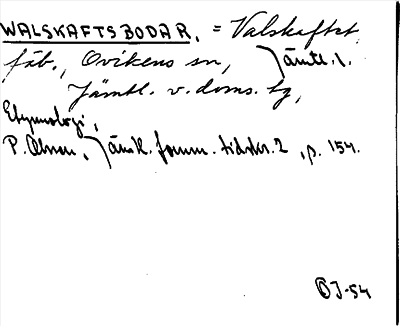 WALSKAFTSBODAR, = Valskaftet
fäb., Ovikens sn, Jämtl. l.
Jämtl. v. doms. tg,
Etymologi,
P. Olsson, Jämtl. fornm. tidskr. 2, p. 154.
OJ-54